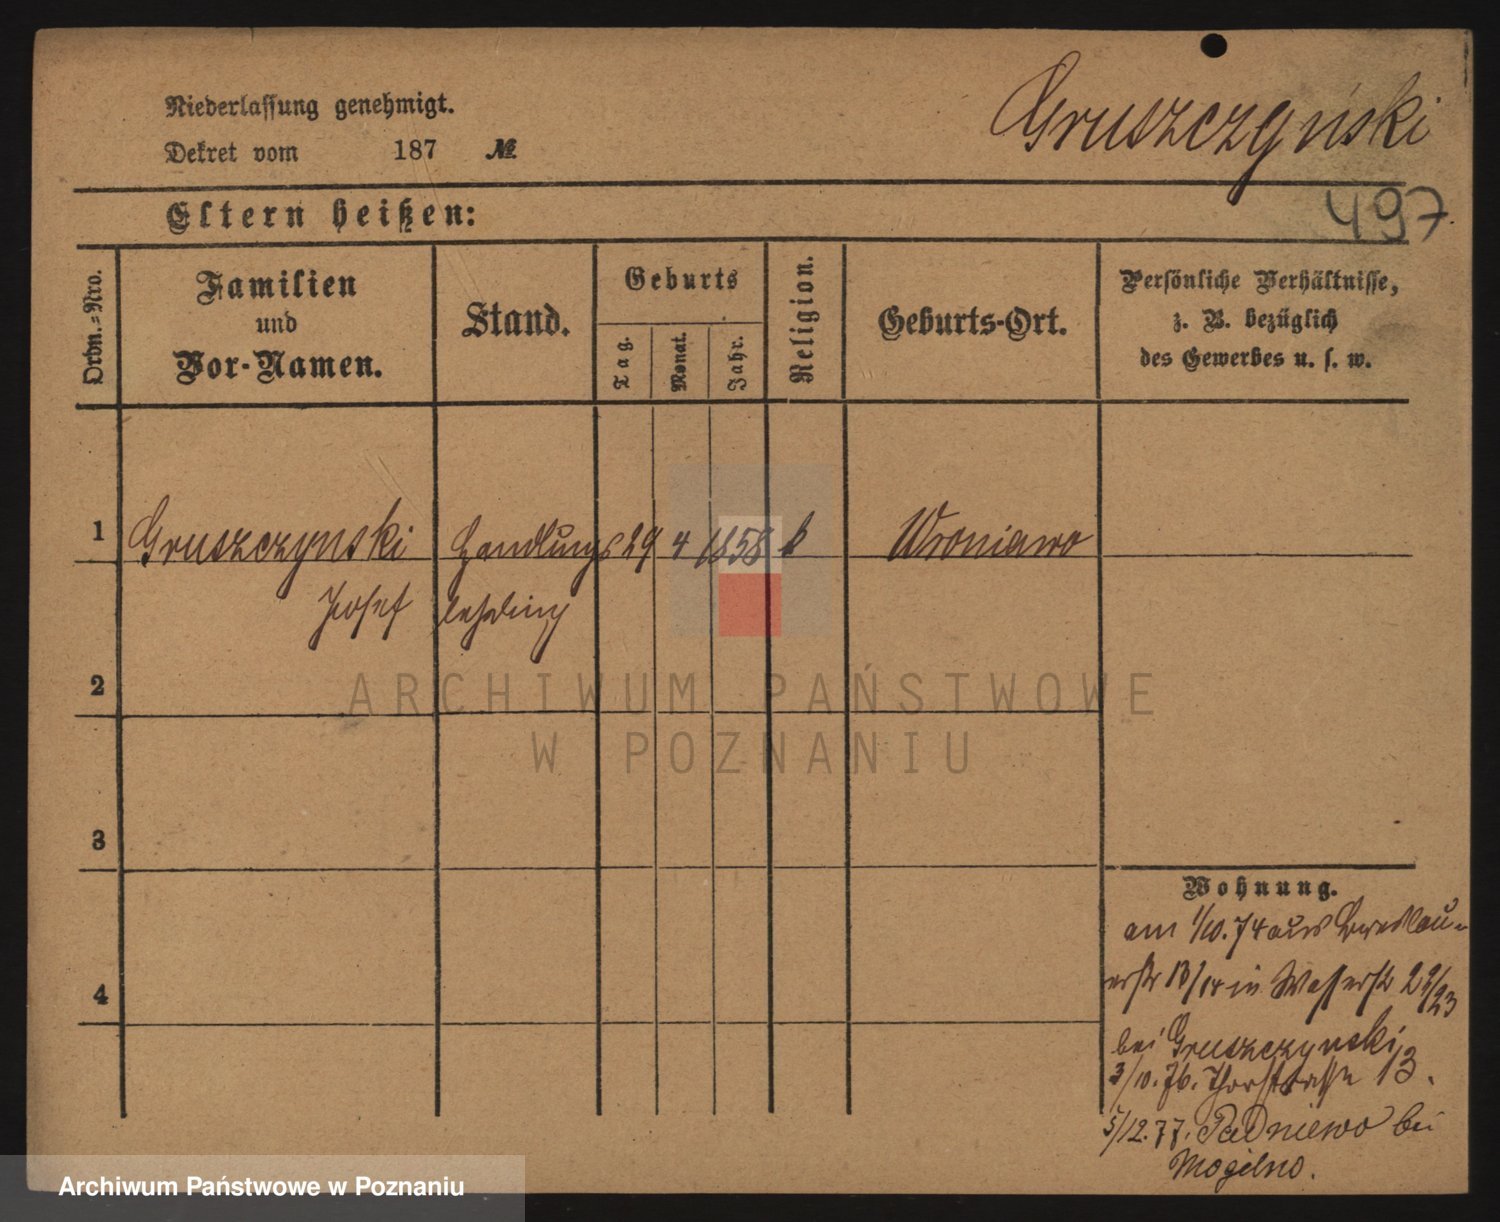 Niederlassung genehmigt.
Dekret vom 187 №
Gruszczyński
497.
Eltern heißen:
Ordn.-Nro.
Familien
und
Vor-Namen.
Stand.
Geburts
Tag.
Monat.
Jahr.
Religion.
Geburts-Ort.
Persönliche Verhältnisse,
z. B. bezüglich
des Gewerbes u. s. w.
1 Gruszczynski Handlungs 29 4 1858 k Wroniawo
Josef lehrling
2
3
4
Wohnung.
am 1/10. 74 aus Breslau-
erstr 13/14 in Wasserstr 22/23
bei Gruszczynski
3/10. 76. Thorstrasse 13.
5/12. 77. Padniewo bei
Mogilno.
ARCHIWUM PAŃSTWOWE
W POZNANIU
Archiwum Państwowe w Poznaniu